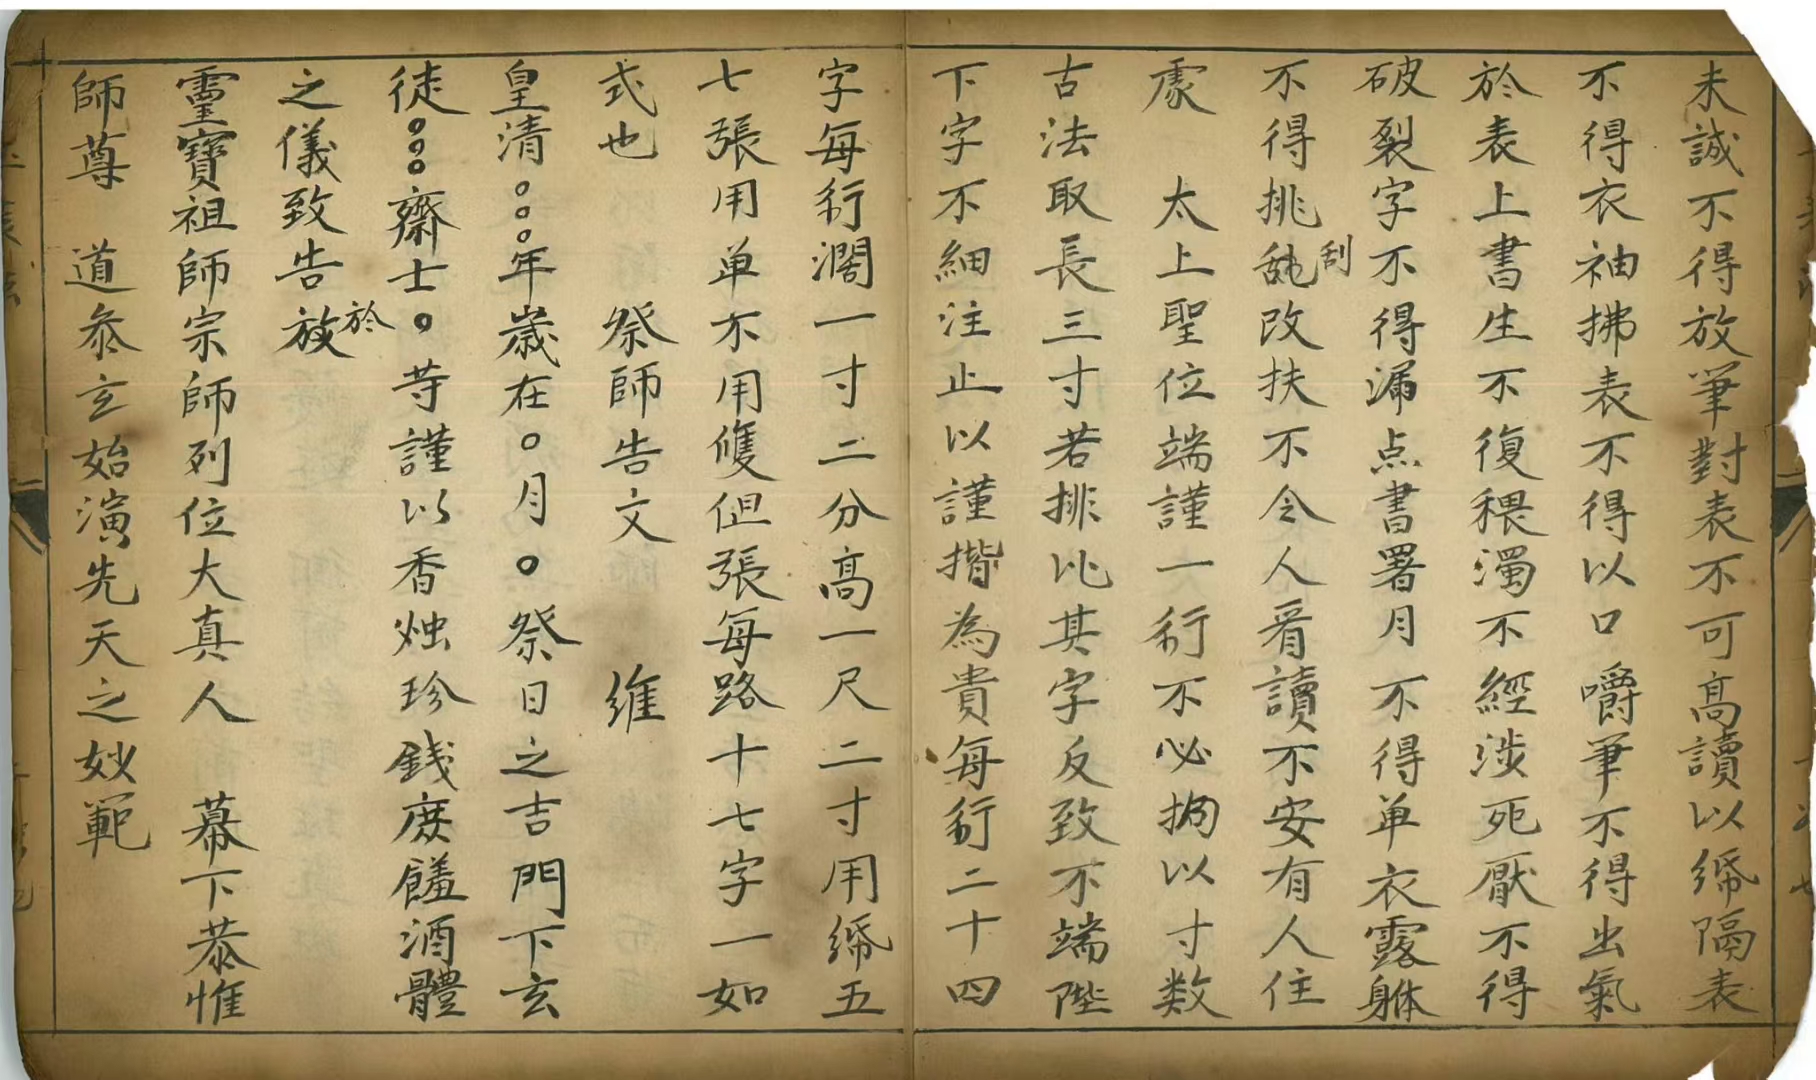 未誠不得放筆對表不可高讀以紙隔表
不得衣袖拂表不得以口嚼筆不得出氣
於表上書生不復穢濁不經涉死厭不得
破裂字不得漏点書署月不得单衣露躰
不得挑刮改扶不令人看讀不安有人住
處 太上聖位端謹一行不必拘以寸数
古法取長三寸若排比其字反致不端陛
下字不細注止以謹揩為貴每行二十四
字每行濶一寸二分高一尺二寸用紙五
七張用单不用雙但張每路十七字一如
式也 祭師告文 維
皇清○○○年歲在○月○祭日之吉門下玄
徒○○○齋士○等謹以香烛珍錢庶饈酒醴
之儀致告於
靈寶祖師宗師列位大真人 幕下恭惟
師尊 道叅玄始演先天之妙範